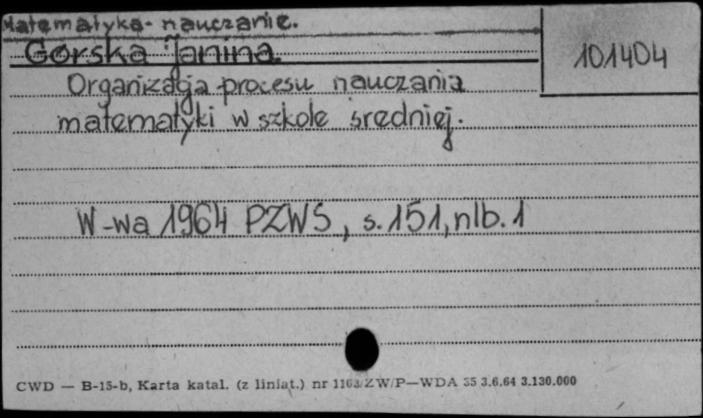 Matematyka - nauczanie.
Górska Janina
101404
Organizacja procesu nauczania
matematyki w szkole średniej.
W-wa 1964 PZWS, s. 151, nlb. 1
CWD — B-15-b, Karta katal. (z liniat.) nr 1163/ZW/P—WDA 35 3.6.64 3.130.000